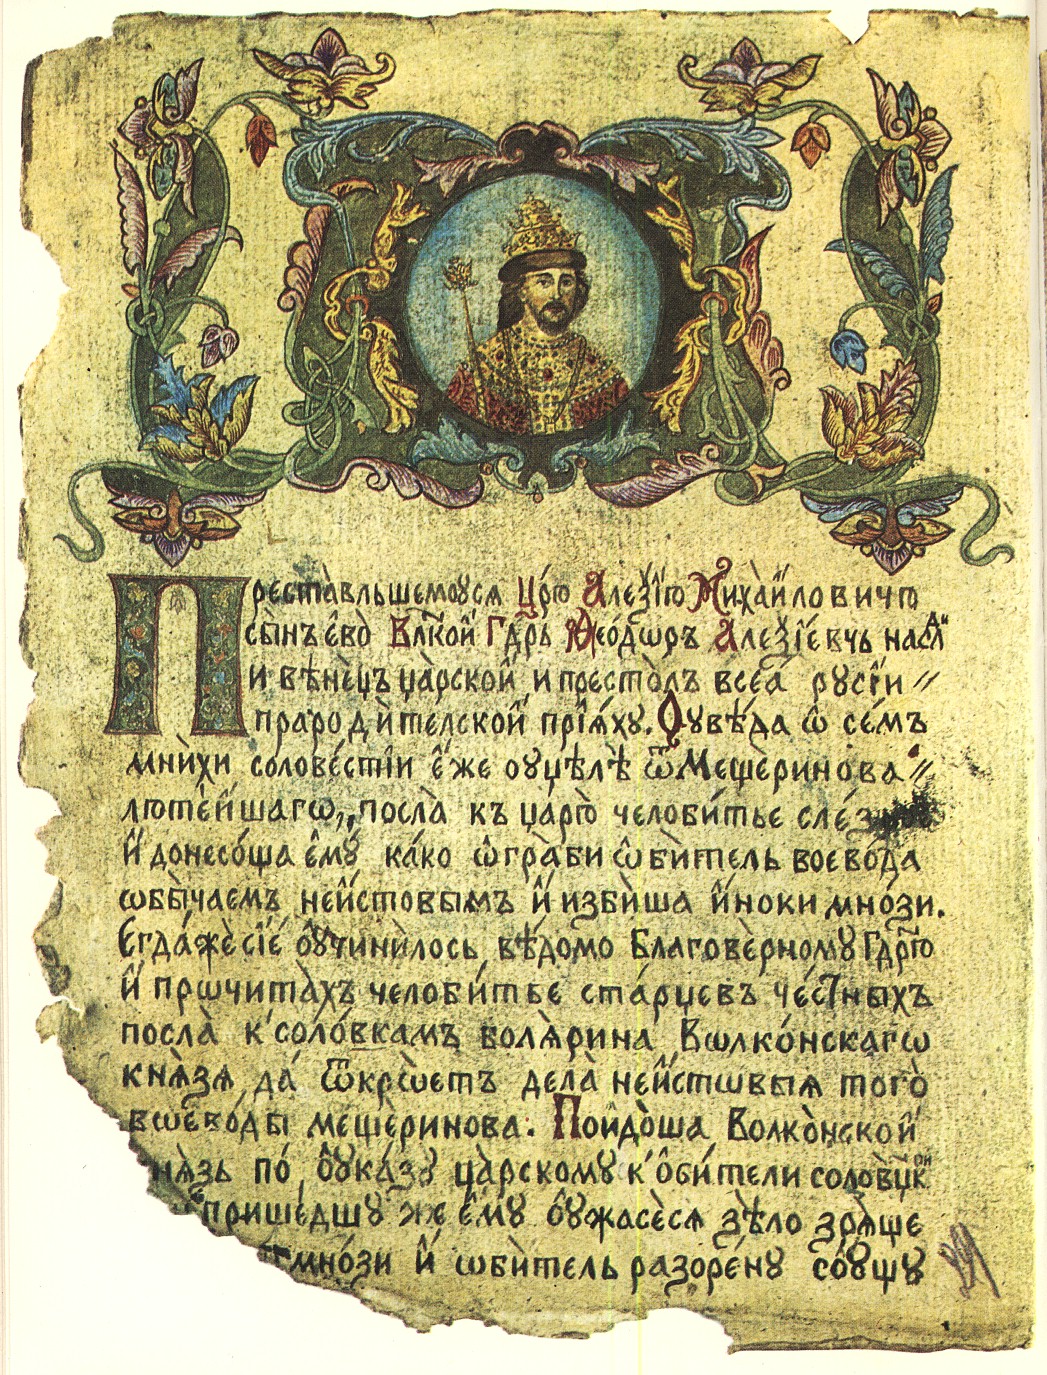 Преста́вльшемꙋся Цр҃ю Алеѯі́ю Миха́йловичю
сы́нъ е҆во̀ Вл҃кой Гдр҃ь Ѳео́дѡръ Алеѯі́евчь насл
и вѣне́цъ ца́рской и престо́лъ всеѧ̀ русі́и
прароди́телской прія́ху. Оувѣ́да ѡ се́мъ
мни́хи солове́стіи е҆́же оуцѣлѣ̀ ѿ Меще́ринова
лютѣ́йшагѡ, посла̀ къ царю̀ челоби́тье
и҆ донесо́ша е҆мꙋ̀ ка́ко ѡ҆гра́би ѡ҆би́тель воево́да
ѡбы́чаемъ неи́стовымъ и҆ изби́ша и҆́ноки мно́зи.
Єгда́же сіѐ оу҆чини́лось вѣ́домо Благове́рномꙋ Гдр҃ю
и҆ прѡчита́хъ челоби́тье ста́рцевъ че́стныхъ
посла̀ к соло́вкамъ боля́рина Вѡлко́нскагѡ
кня́зя да́ ѿкрѡ́етъ дела̀ неи́стѡвыя того̀
вѡево́ды меще́ринова. Пойдо́ша Волко́нской
нязь по оу҆ка́зꙋ ца́рскомꙋ к о҆би́тели солове́цкой
прише́дшꙋ же е҆мꙋ̀ оу҆жасе́ся ѕѣ́ло зря́ще
мно́зи и҆ ѡби́тель разоре́нꙋ со́ущꙋ